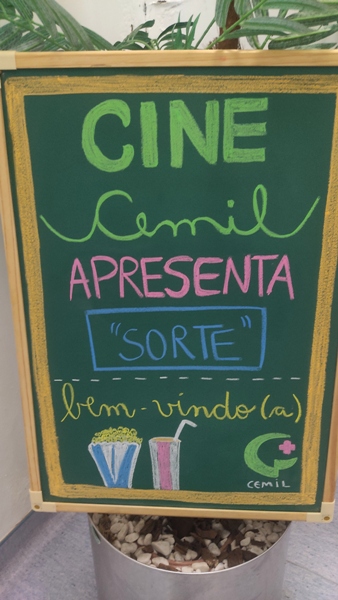 CINE
Cemil
APRESENTA
"SORTE"
bem-vindo(a)
CEMIL